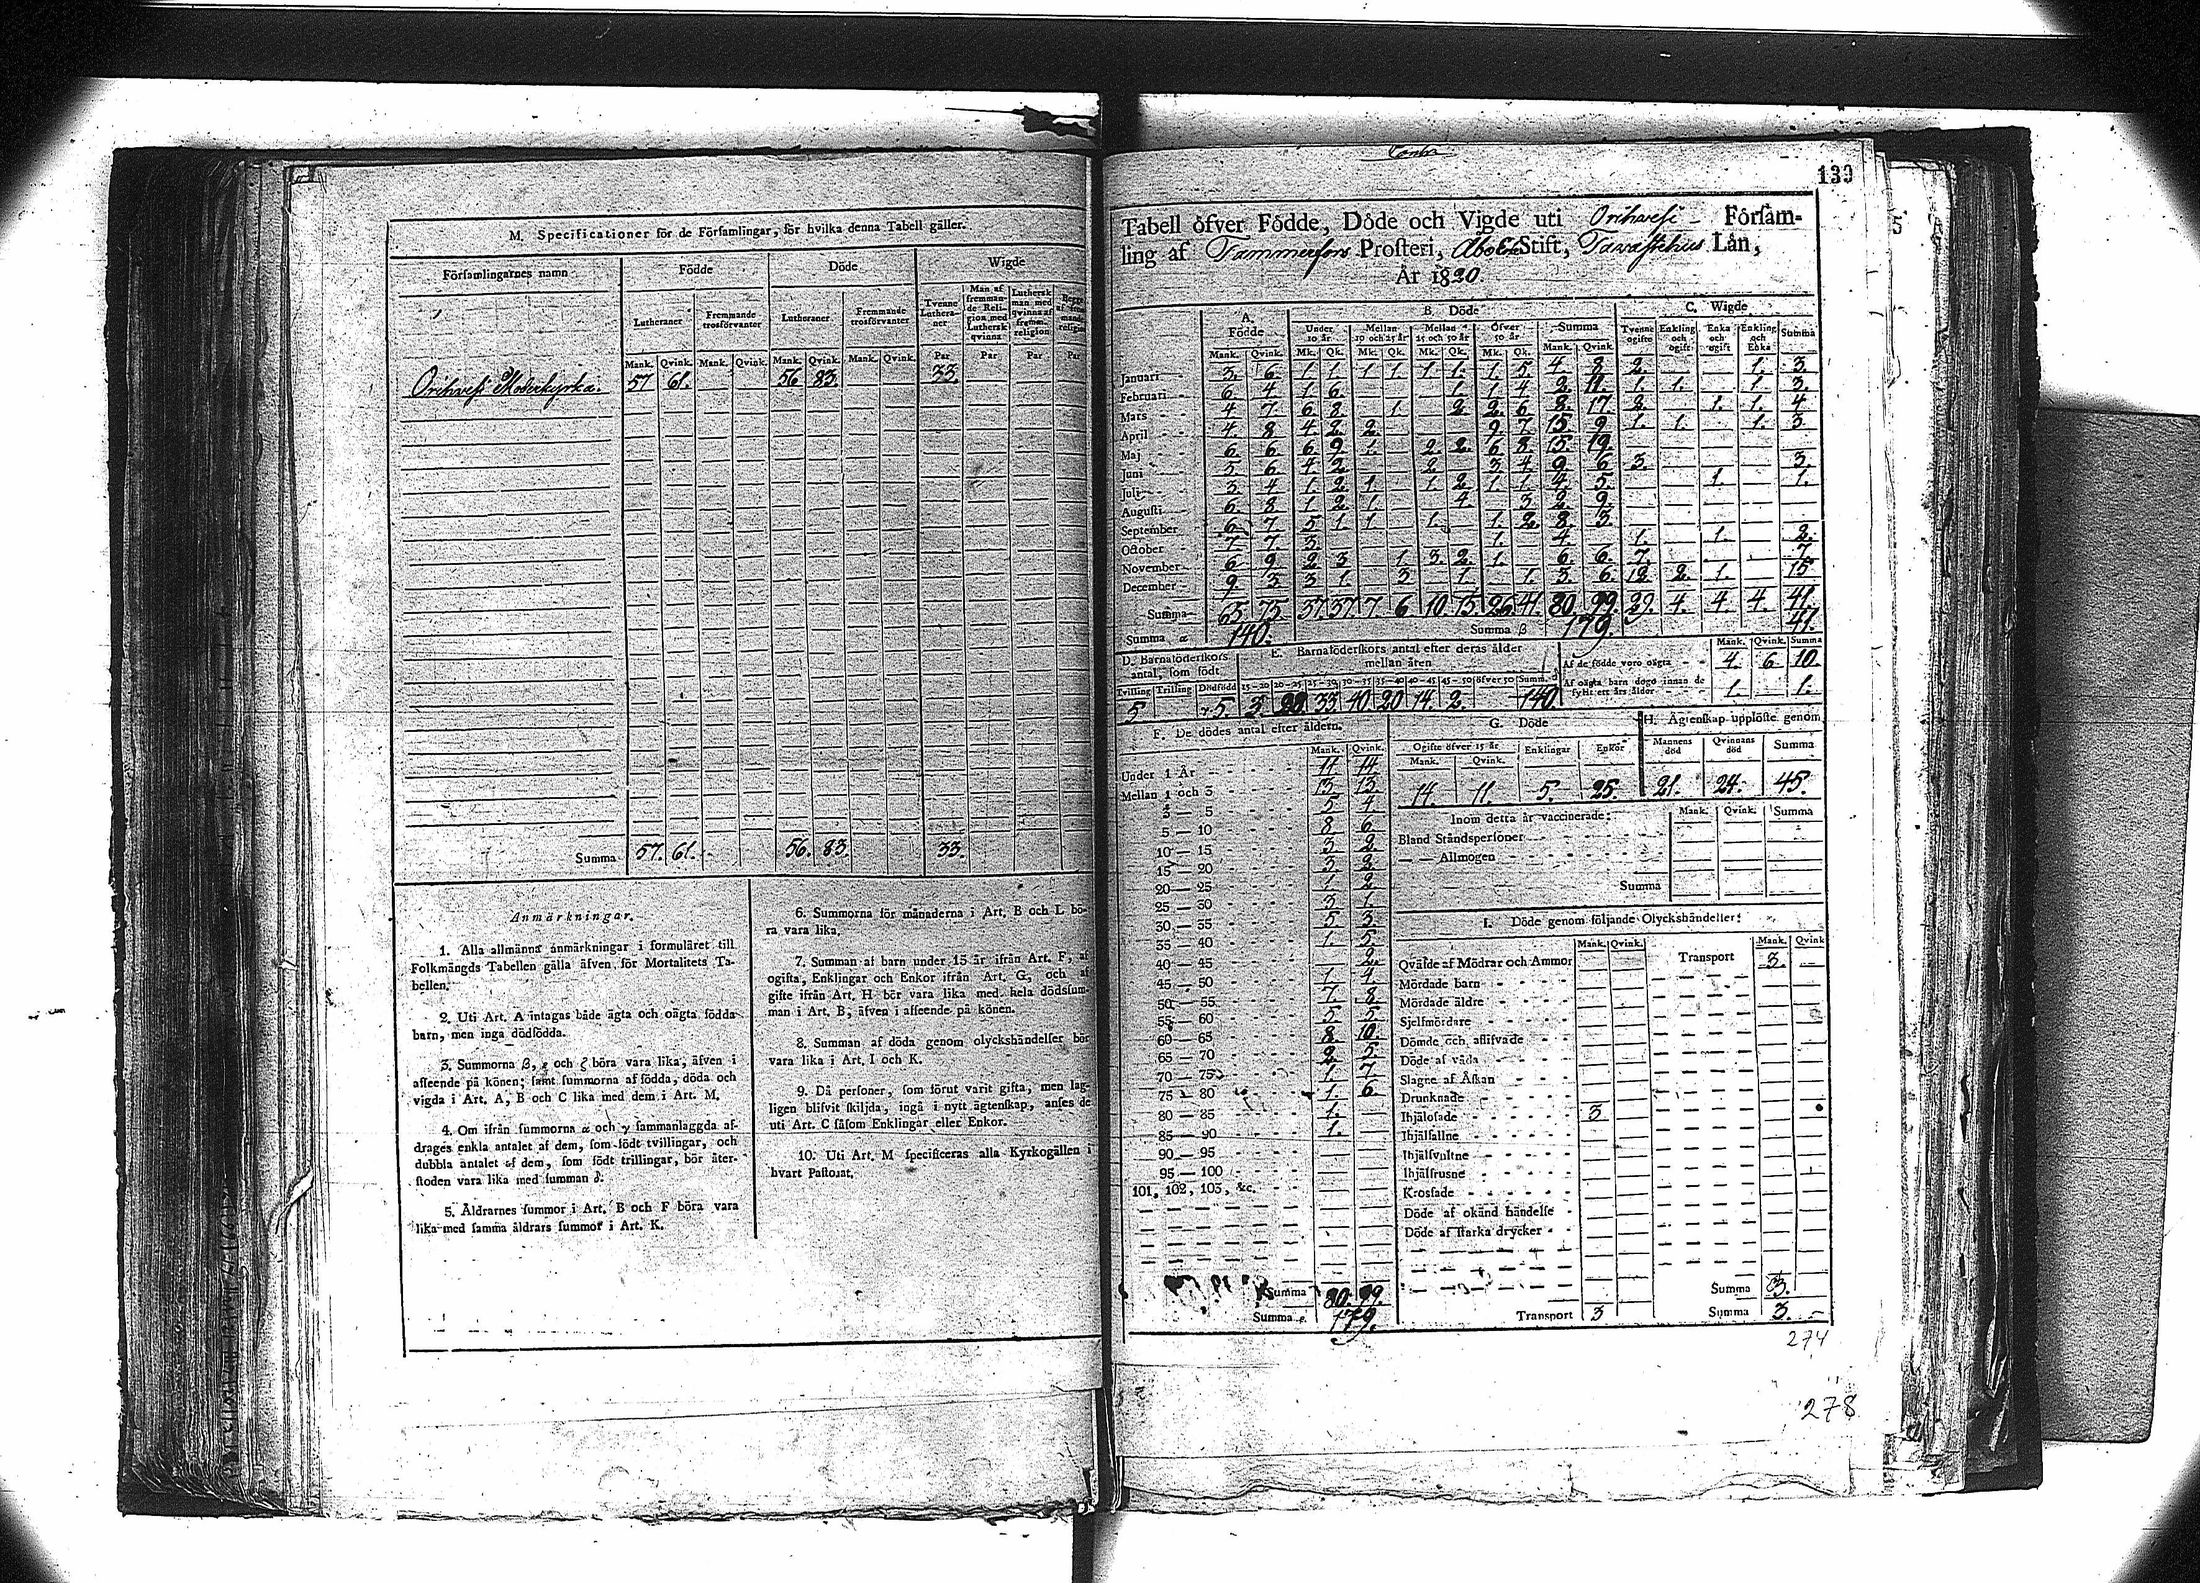 M. Specificationer för de Församlingar, för hvilka denna Tabell gäller.
Församlingarnes namn
Födde
Döde
Wigde
Lutheraner
Fremmande trosförvanter
Lutheraner
Fremmande trosförvanter
Tvenne Lutheraner
Man af fremmande Religion med Luthersk qvinna
Luthersk man med qvinna af fremm. religion
Mank. Qvink. Mank. Qvink. Mank. Qvink. Mank. Qvink. Par Par Par Par
Orihvesi Moderkyrka. 57 61. 56 83. 33.
Summa 57. 61. 56. 83. 33.
Anmärkningar.
1. Alla allmänna anmärkningar i formuläret till
Folkmängds Tabellen gälla äfven för Mortalitets Ta-
bellen.
2. Uti Art. A intagas både ägta och oägta födda
barn, men inga dödfödda.
3. Summorna β, ε och ζ böra vara lika, äfven i
afseende på könen; samt summorna af födda, döda och
vigda i Art. A, B och C lika med dem i Art. M.
4. Om ifrån summorna α och γ sammanlaggda af-
drages enkla antalet af dem, som födt tvillingar, och
dubbla antalet af dem, som födt trillingar, bör åter-
stoden vara lika med summan δ.
5. Åldrarnes summor i Art. B och F böra vara
lika med samma åldrars summor i Art. K.
6. Summorna för månaderna i Art. B och L bö-
ra vara lika.
7. Summan af barn under 15 år ifrån Art. F, af
ogifta, Enklingar och Enkor ifrån Art. G, och af
gifte ifrån Art. H bör vara lika med hela dödssum-
man i Art. B, äfven i afseende på könen.
8. Summan af döda genom olyckshändelser bör
vara lika i Art. I och K.
9. Då personer, som förut varit gifta, men lag-
ligen blifvit skiljda, ingå i nytt ägtenskap, anses de
uti Art. C såsom Enklingar eller Enkor.
10. Uti Art. M specificeras alla Kyrkogällen i
hvart Pastorat.
139
5
Tabell öfver Födde, Döde och Vigde uti Orihvesi Försam-
ling af Tammerfors Prosteri, Åbo Stift, Tavastehus Län,
År 1820.
A. Födde
B. Döde
C. Wigde
Under 10 år. Mellan 10 och 25 år Mellan 25 och 50 år Öfver 50 år Summa
Tvenne ogifte Enkling och ogift Enka och ogift Enkling och Enka Summa
Mank. Qvink. Mk. Qk. Mk. Qk. Mk. Qk. Mk. Qk. Mank. Qvink.
Januari 3. 6. 1. 1. 1. 1. 1. 1. 1. 5. 4. 8. 2. 1. 3.
Februari 6. 4. 1. 6. 1. 1. 4. 2. 11. 1. 1. 1. 3.
Mars 4. 7. 6. 8. 1. 2. 2. 6. 8. 17. 2. 1. 1. 4.
April 4. 8. 4. 2. 2. 9. 7. 15. 9. 1. 1. 1. 3.
Maj 6. 6. 6. 9. 1. 2. 2. 6. 8. 15. 19.
Juni 5. 6. 4. 2. 2. 3. 4. 9. 6. 3. 3.
Juli 3. 4. 1. 2. 1. 1. 2. 1. 1. 4. 5. 1. 1.
Augusti 6. 8. 1. 2. 1. 4. 3. 2. 9.
September 6. 7. 5. 1. 1. 1. 1. 2. 8. 3.
October 7. 7. 3. 1. 4. 1. 1. 2.
November 6. 9. 2. 3. 1. 3. 2. 1. 6. 6. 7. 7.
December 9. 3. 3. 1. 3. 1. 1. 3. 6. 12. 2. 1. 15.
Summa 65. 75. 37. 37. 7. 6. 10. 15. 26. 41. 80. 99. 29. 4. 4. 4. 41.
Summa α 140. Summa β 179. 41.
D. Barnaföderskors antal, som födt
Tvilling Trilling Dödfödd
5 5.
E. Barnaföderskors antal efter deras ålder mellan åren
15-20 20-25 25-30 30-35 35-40 40-45 45-50 öfver 50 Summ. δ
3. 28. 33. 40. 20. 14. 2. 140.
Mank. Qvink. Summa
Af de födde voro oägta 4. 6. 10.
Af oägta barn dogo innan de fyllt ett års ålder 1. 1.
F. De dödes antal efter åldern.
Mank. Qvink.
Under 1 År 11. 14.
Mellan 1 och 3 13. 13.
3 — 5 5. 4.
5 — 10 8. 6.
10 — 15 3. 2.
15 — 20 3. 2.
20 — 25 1. 2.
25 — 30 3. 1.
30 — 35 5. 3.
35 — 40 1. 5.
40 — 45 2.
45 — 50 1. 4.
50 — 55 7. 8.
55 — 60 5. 5.
60 — 65 8. 10.
65 — 70 2. 5.
70 — 75 1. 7.
75 — 80 1. 6.
80 — 85 1.
85 — 90 1.
90 — 95
95 — 100
101, 102, 103, &c.
Summa 80. 99.
Summa ε. 179.
G. Döde
Ogifte öfver 15 år Enklingar Enkor
Mank. Qvink.
14. 11. 5. 25.
H. Ägtenskap upplöste genom
Mannens död Qvinnans död Summa
21. 24. 45.
Inom detta år vaccinerade: Mank. Qvink. Summa
Bland Ståndspersoner
— — Allmogen
Summa
I. Döde genom följande Olyckshändelser:
Mank. Qvink. Mank. Qvink
Qväfde af Mödrar och Ammor Transport 3.
Mördade barn
Mördade äldre
Sjelfmördare
Dömde och aflifvade
Döde af våda
Slagne af Åskan
Drunknade
Ihjälosade 3
Ihjälfallne
Ihjälsvultne
Ihjälfrusne
Krossade
Döde af okänd händelse
Döde af starka drycker
Summa 3.
Transport 3 Summa 3.
274
278